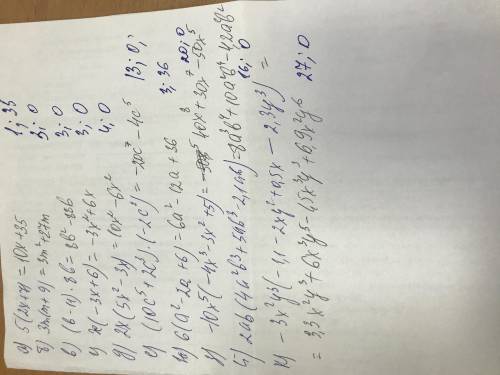 а) 5(2x+7) = 10x+35 1; 35
б) 3m(m+9) = 3m²+27m 3; 0
в) (b-11)·8b = 8b²-88b 3; 0
г) x(-3x+6) = -3x²+6x 3; 0
д) 2x(5x²-3x) = 10x³-6x² 4; 0
е) (10c⁵+2c³)·(-2c²) = -20c⁷-4c⁵ 13; 0;
ю) 6(a²-2a+6) = 6a²-12a+36 3; 36
-10x⁵(-4x³-3x²+5) = 40x⁸+30x⁷-50x⁵ 20; 0
2ab(4a²b³+5ab³-2,1ab) = 8a³b⁴+10a²b⁴-4,2a²b² 16; 0
к) -3x²y³(-1,1-2xy²+1,5x-2,3y³) =
= 3,3x²y³+6x³y⁵-4,5x³y³+6,9x²y⁶ 27; 0